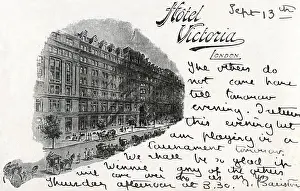 Hotel
Victoria
LONDON.
Sept 13th
The others do
not come home
till tomorrow
evening, I return
this evening but
am playing in a
tournament tomorrow
We shall be so glad if
Winnie & any of the others
can do as
Thursday afternoon at 3.30.